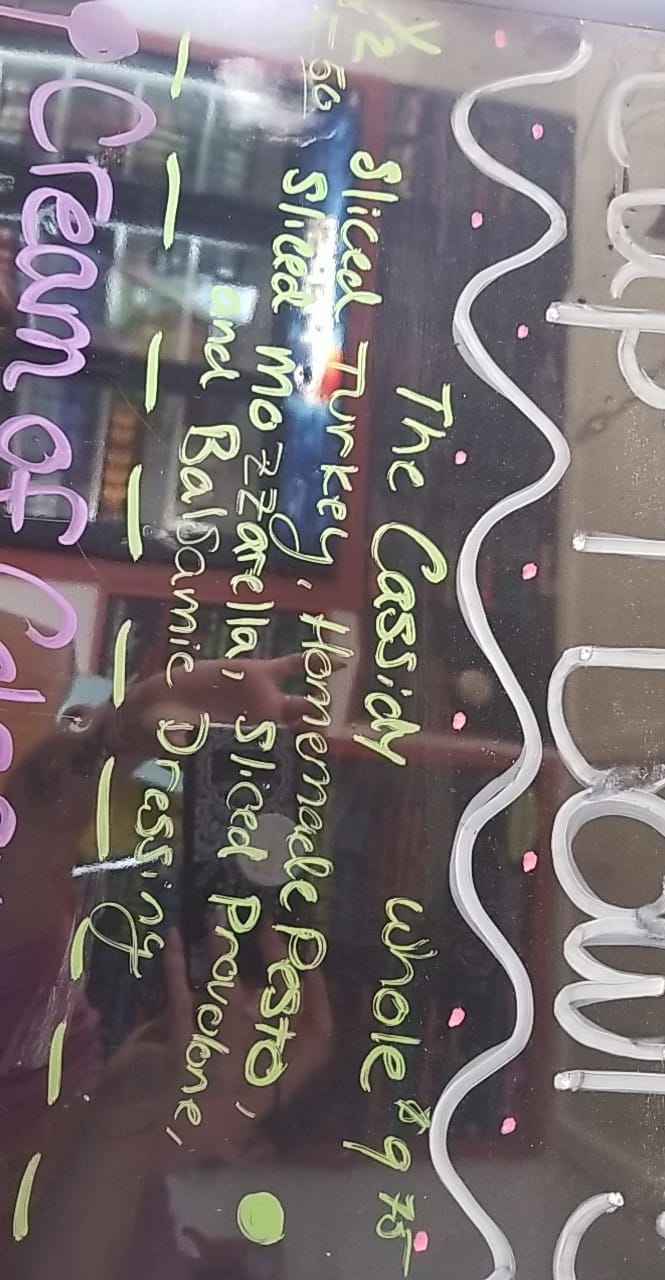 Cup | Bowl
The Cassidy Whole $9 75
Sliced Turkey, Homemade Pesto,
Sliced Mozzarella, Sliced Provelone,
and Balsamic Dressing
Cream of